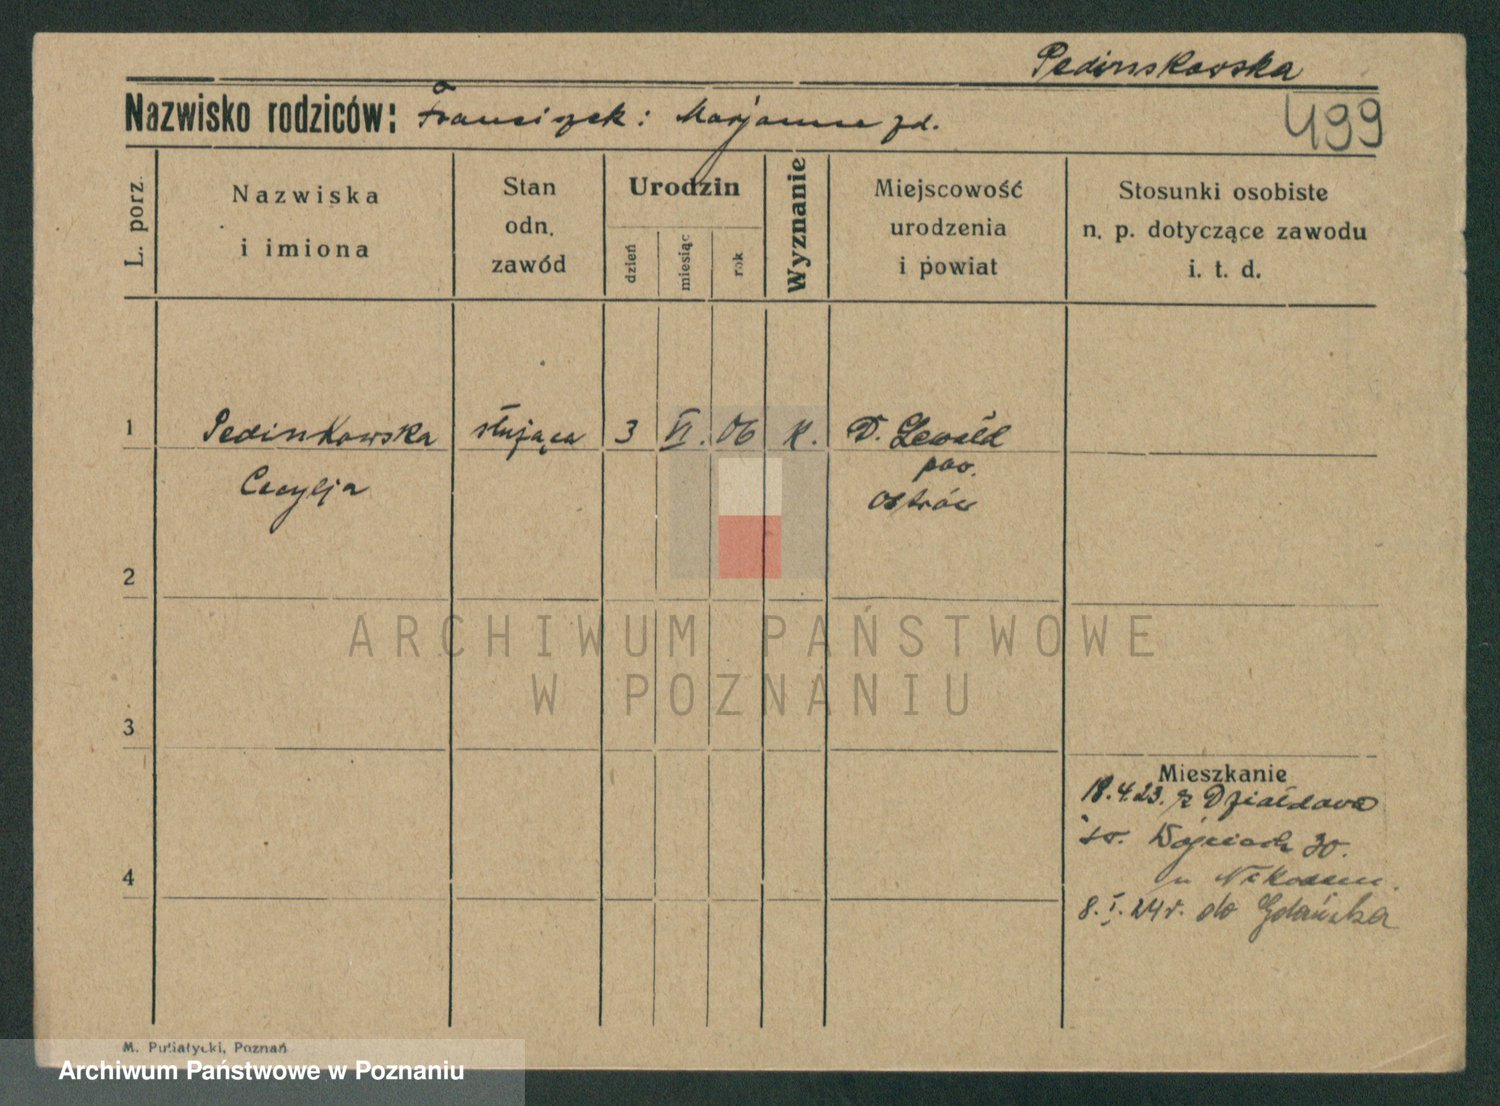 Pedinskowska
Nazwisko rodziców: Franciszek: Marjanna zd.
499
L. porz.
Nazwiska
i imiona
Stan
odn.
zawód
Urodzin
dzień
miesiąc
rok
Wyznanie
Miejscowość
urodzenia
i powiat
Stosunki osobiste
n. p. dotyczące zawodu
i. t. d.
1
Pedinkowska
służąca
3
VI.
06
k.
D. Lewald
Cecylja
pow.
Ostrów
2
ARCHIWUM PAŃSTWOWE
W POZNANIU
3
Mieszkanie
18.4.23. z Działdowa
św. Wojciech 30.
4
u
8. I. 24 r. do Gdańska
M. Putiatycki, Poznań
Archiwum Państwowe w Poznaniu